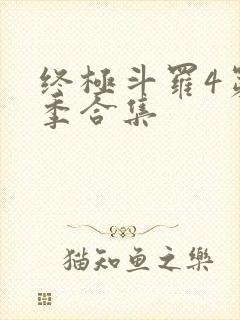 终極斗羅4第
季合集
猫知鱼之樂